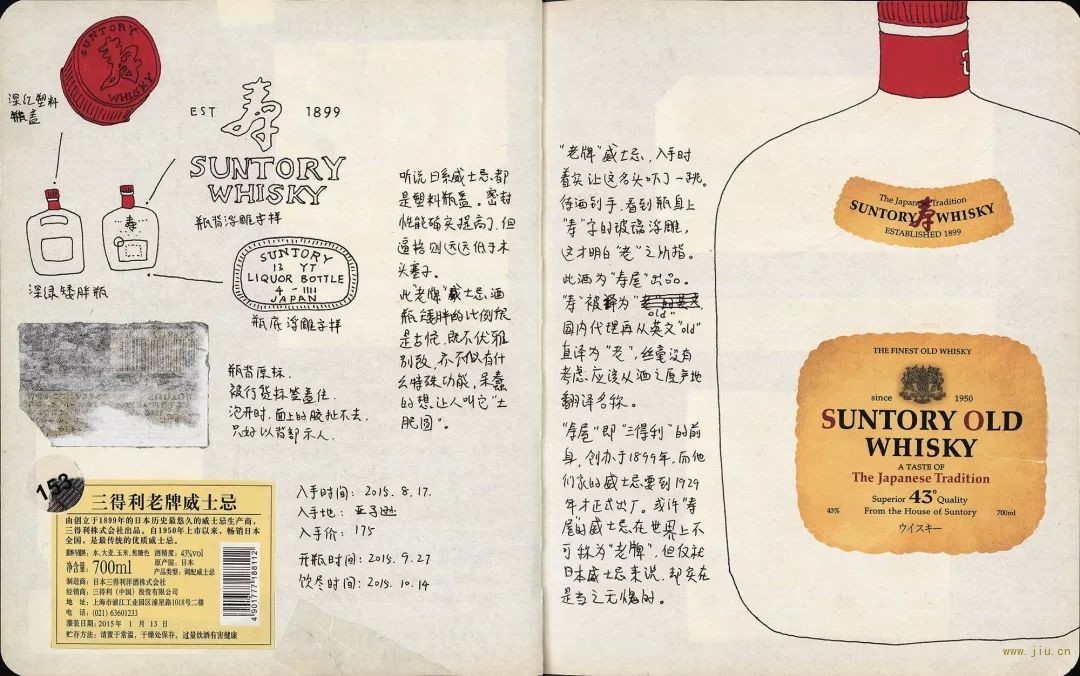 SUNTORY
寿
WHISKY
深红塑料
瓶盖
EST 寿 1899
SUNTORY
WHISKY
瓶背浮雕字样
寿
SUNTORY
13 YT
LIQUOR BOTTLE
4 - IIII
JAPAN
深绿矮胖瓶
瓶底浮雕字样
瓶背原标.
被行货标签盖住.
泡开时.面上的胶扯不去.
只好以背部示人.
153
三得利老牌威士忌
由创立于1899年的日本历史最悠久的威士忌生产商,
三得利株式会社出品。自1950年上市以来,畅销日本
全国,是最传统的优质威士忌。
原料与辅料:水,大麦,玉米,焦糖色 酒精度:43%vol
净含量:700ml 原产国:日本
产品类型:调配威士忌
制造商:日本三得利洋酒株式会社
经销商:三得利(中国)投资有限公司
地 址:上海市浦江工业园区浦星路1018号二楼
电 话:(021) 63601233
灌装日期:2015年 1 月 13 日
贮存方法:请置于常温,干燥处保存。过量饮酒有害健康
4 901777 188112
入手时间: 2015.8.17.
入手地: 亚马逊
入手价: 175
开瓶时间: 2015.9.27
饮尽时间: 2015.10.14
听说日系威士忌.都
是塑料瓶盖。密封
性能确实提高了,但
逼格则远远低于木
头塞子.
此"老牌"威士忌,酒
瓶矮胖的比例很
是古怪,既不优雅
别致,亦不似有什
么特殊功能,呆蠢
的想让人叫它"土
肥圆"。
"老牌"威士忌,入手时
着实让这名头吓了一跳。
待酒到手,看到瓶身上
"寿"字的玻璃浮雕,
这才明白"老"之所指。
此酒为"寿屋"出品。
"寿"被译为"old"
国内代理再从英文"old"
直译为"老",丝毫没有
考虑应该从酒之原产地
翻译名称.
"寿屋"即"三得利"的前
身,创办于1899年.而他
们家的威士忌要到1929
年才正式出厂。或许"寿
屋"的威士忌在世界上不
可称为"老牌".但仅就
日本威士忌来说,却实在
是当之无愧的.
The Japanese Tradition
SUNTORY 寿 WHISKY
ESTABLISHED 1899
THE FINEST OLD WHISKY
since 1950
SUNTORY OLD
WHISKY
A TASTE OF
The Japanese Tradition
Superior 43° Quality
43% From the House of Suntory 700ml
ウイスキー
www.jiu.cn